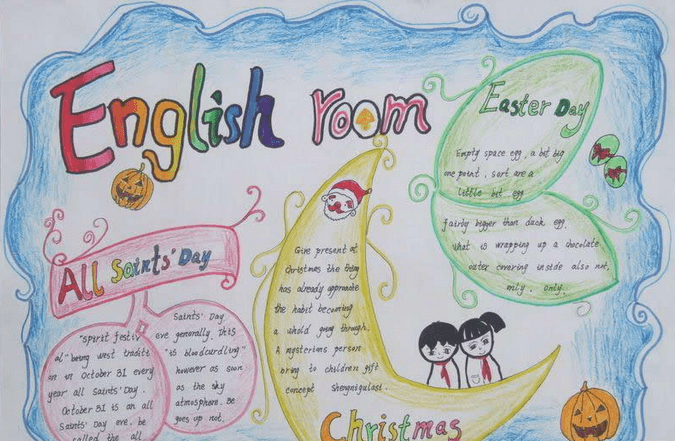 English room
Easter Day
Empty space egg, a bit big
one point, sort are a
little bit egg
fairly bigger than duck egg.
What is wrapping up a chocolate
outer covering inside also not,
only. only.
All Saints' Day
"Spirit festiv
al" being west traditi
on in October 31 every
year all Saints' Day.
October 31 is an all
Saints' Day eve. be
called the all
Saints' Day
eve generally. This
"is bloodcurdling"
however as soon
as the sky
atmosphere. Be
goes up not.
Give present at
Christmas the thing
has already approximate
the habit becoming
a whold going through.
A mysterious person
bring to children gift
concept Shengnigulast.
Christmas